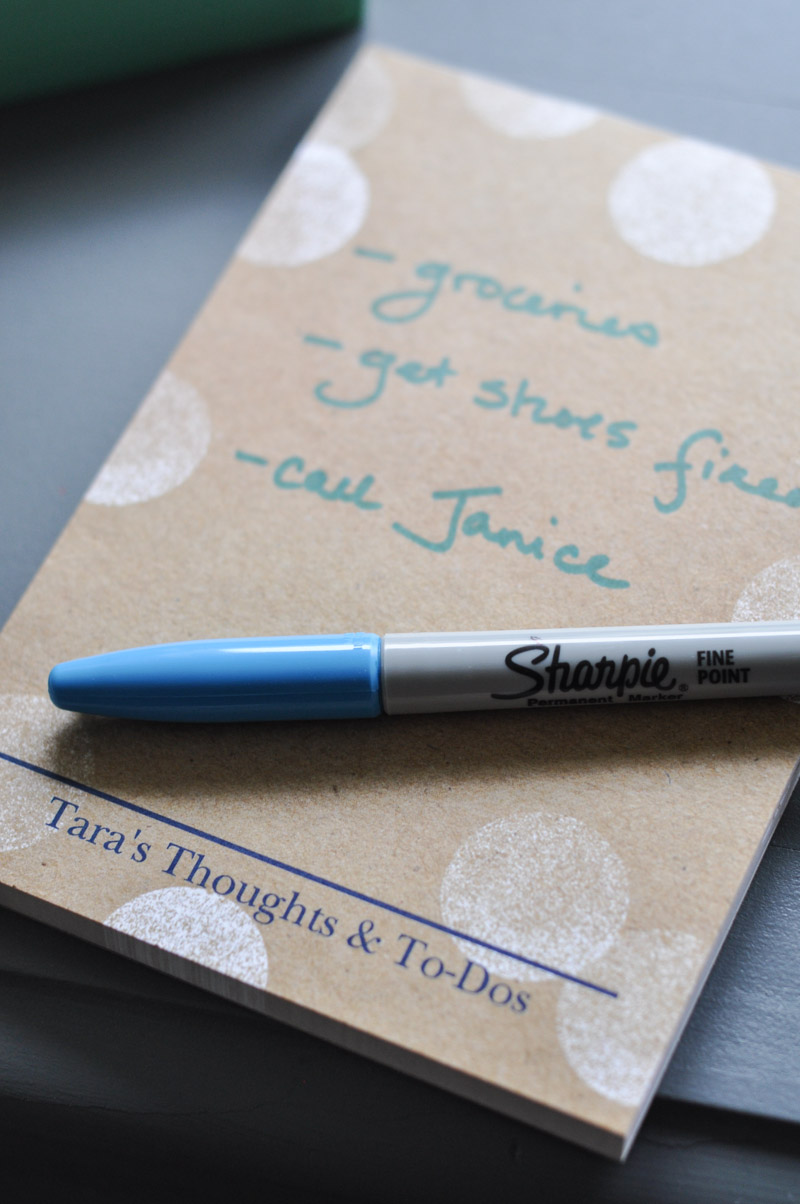 - groceries
- get shoes fixed
- call Janice
Sharpie® FINE POINT
Permanent Marker
Tara's Thoughts & To-Dos